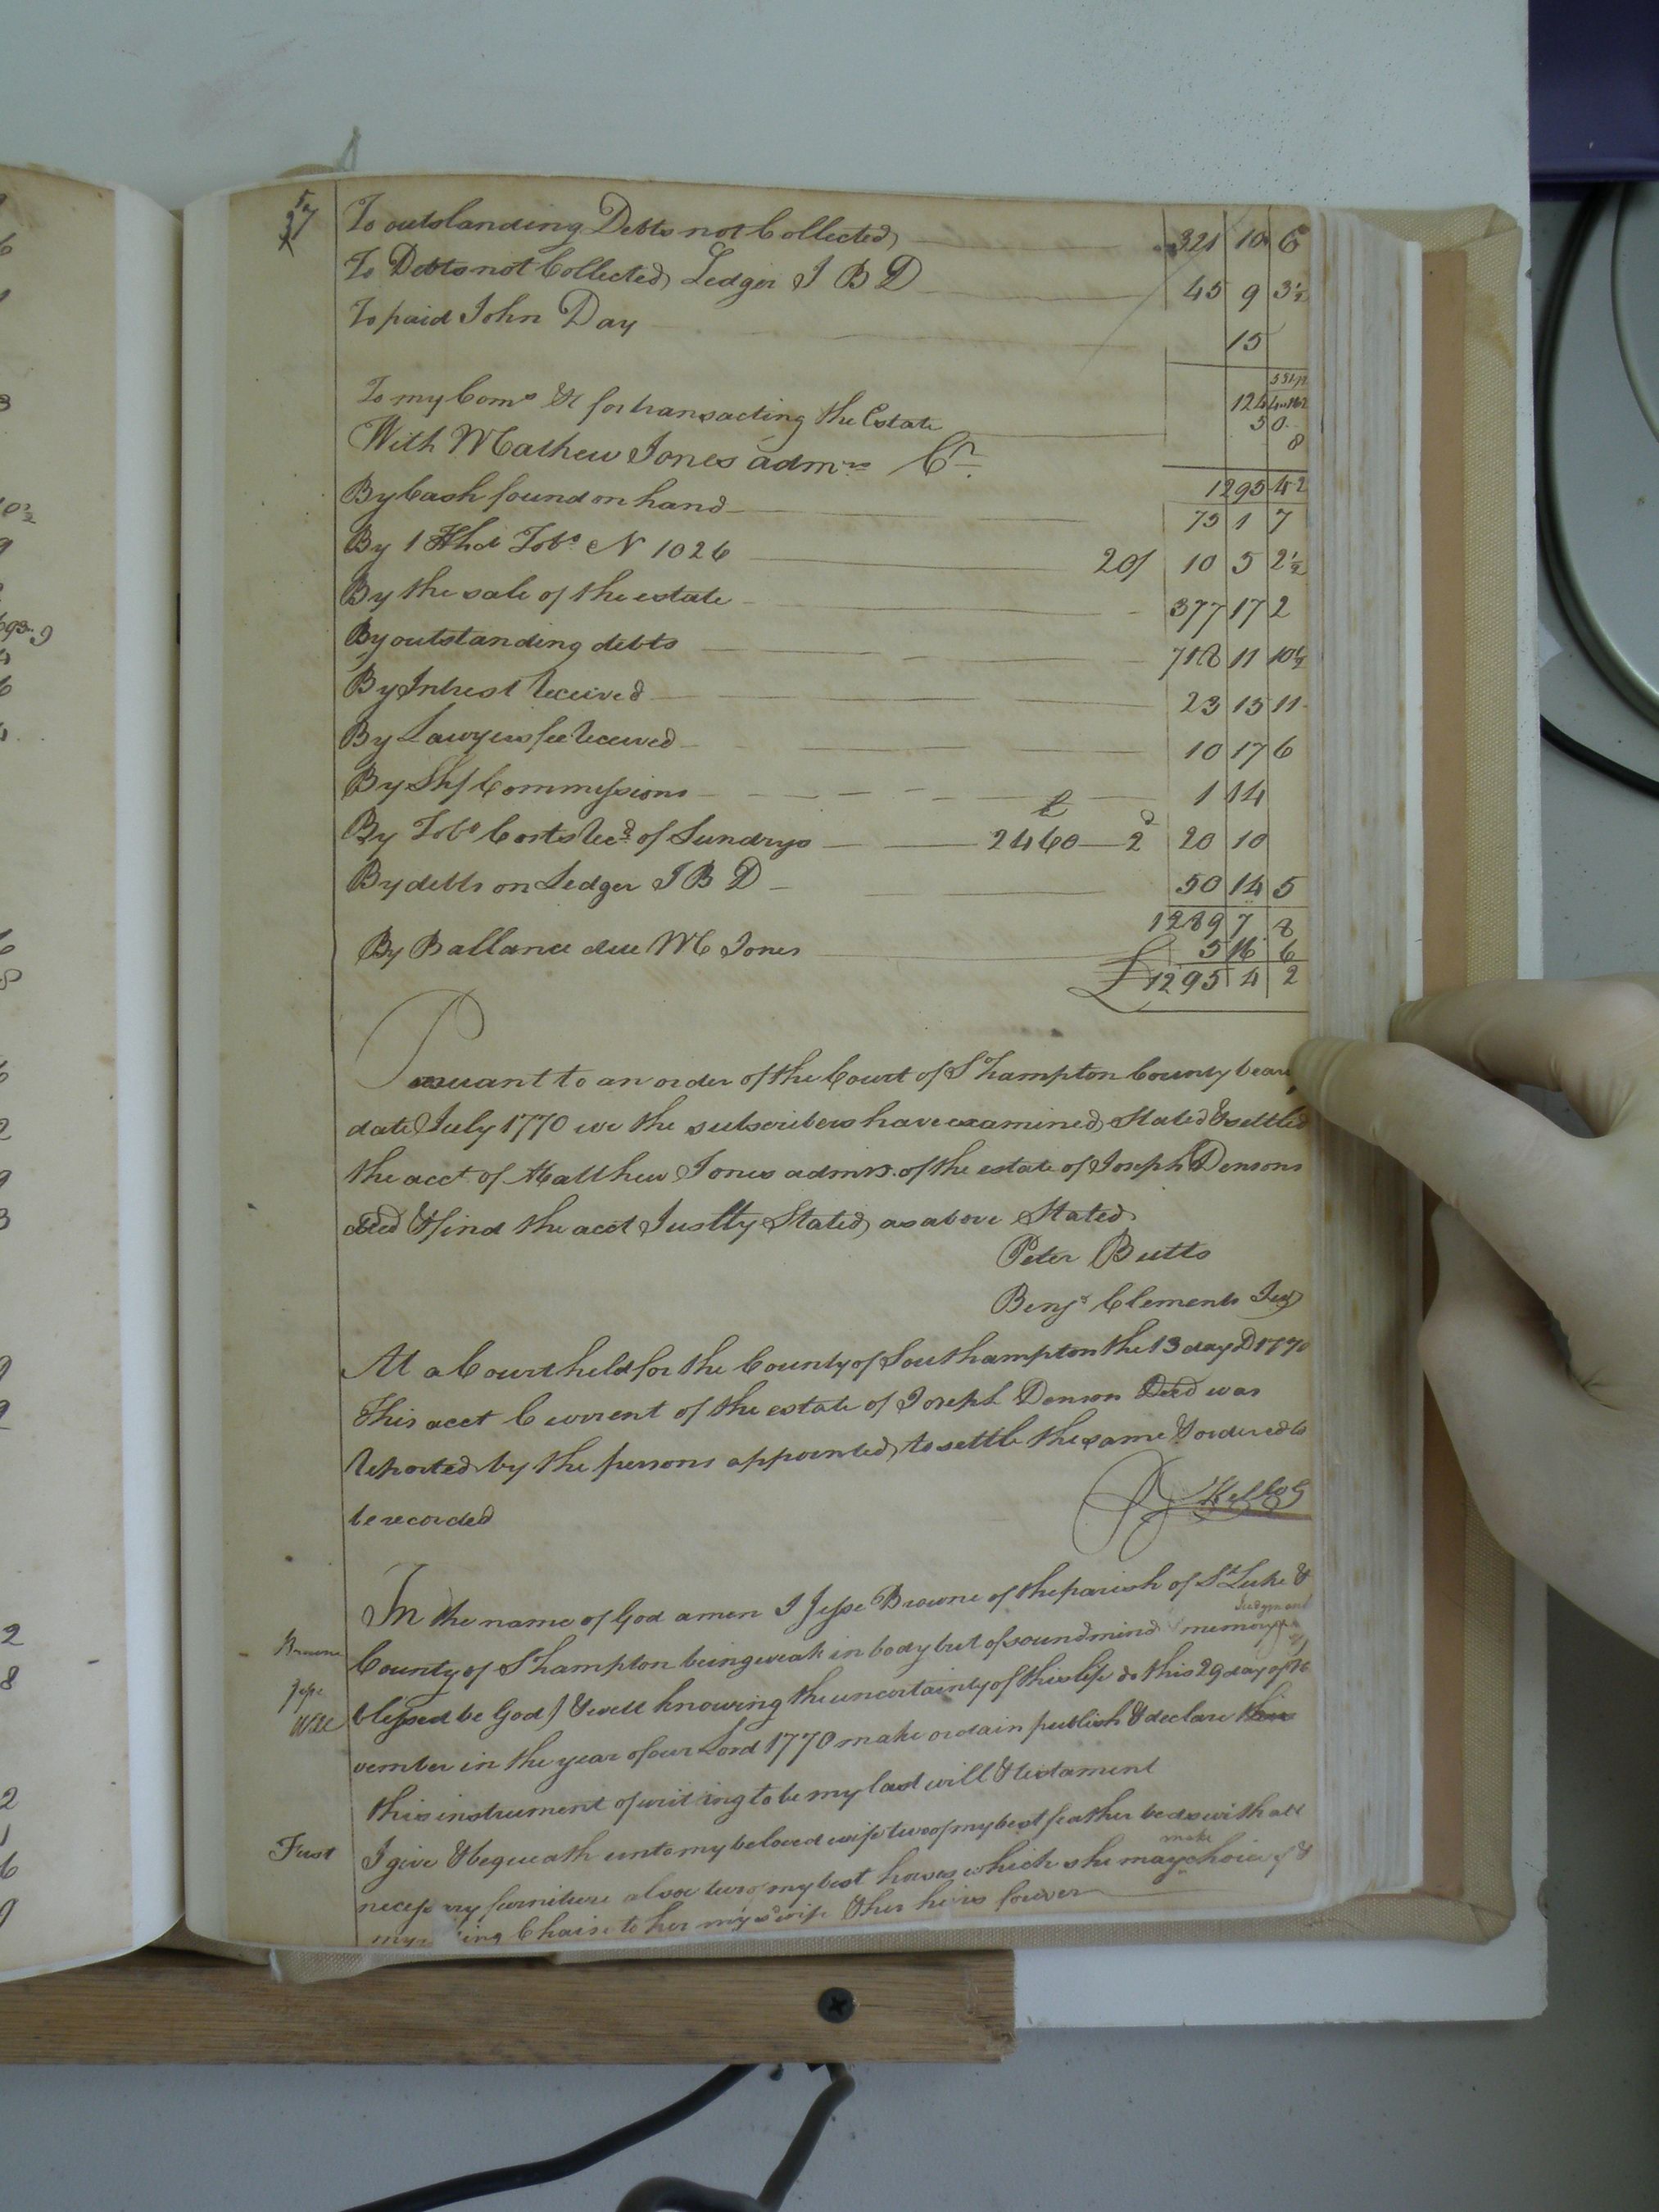 57
To outstanding Debts not Collected 321 10 6
To Debts not Collected Ledger I B D 45 9 3½
To paid John Day 15
To my Coms &c for transacting the Estate 50
With Mathew Jones admrs Cr
1295 4 2
By Cash found on hand 75 1 7
By 1 Hhd Tobo N 1026 20/ 10 5 2½
By the sale of the estate 377 17 2
By outstanding debts 718 11 10½
By Intrest Received 23 15 11
By Lawyers fee Received 10 17 6
By Shf Commissions 1 14
By Tobo Costs Recd of Sundrys 2460 2d 20 10
By debts on Ledger I B D 50 14 5
1289 7 8
By Ballance due M Jones 5 16 6
£1295 4 2
Pursuant to an order of the Court of S hampton County bear
date July 1770 we the subscribers have examined Stated & settled
the acct. of Matthew Jones admrs. of the estate of Joseph Densons
decd & find the acct Justly Stated as above Stated
Peter Butts
Benja Clements
At a Court held for the County of Southampton the 13 day D 1770
This acct Current of the estate of Joseph Denson Decd was
Reported by the persons appointed to settle the same & ordered to
be recorded
Browne
Jesse
Will
In the name of God amen I Jesse Browne of the parish of St Luke &
County of S hampton being weak in body but of sound mind Judgment memory
blessed be God) & well knowing the uncertainty of this life do this 29 day of No
vember in the year of our Lord 1770 make ordain publish & declare
this instrument of writing to be my last will & testament
First I give & bequeath unto my beloved wife two of my best feather beds with all
necessary furniture also two of my best horses which she may make choice of &
my Chair to her my sd wife & her heirs forever